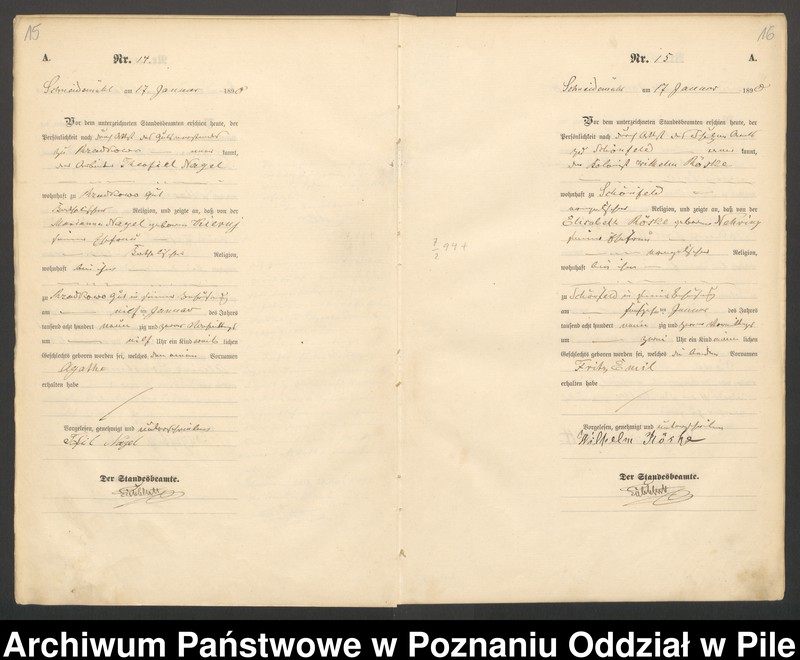 15
A.
Nr. 14.
Schneidemühl am 17 Januar 1890
Vor dem unterzeichneten Standesbeamten erschien heute, der
Persönlichkeit nach durch Attest des Gutsvorstandes
zu kannt,
der Arbeiter Theofiel Nagel
wohnhaft zu Gut
katholischer Religion, und zeigte an, daß von der
Marianna Nagel geborene
seiner Ehefrau
katholischer Religion,
wohnhaft bei ihm
zu Gut in seiner Behausung
am elften Januar des Jahres
tausend acht hundert neunzig und zwar Nachmittags
um elf Uhr ein Kind weiblichen
Geschlechts geboren worden sei, welches den Vornamen
Agathe
erhalten habe
Vorgelesen, genehmigt und unterschrieben
Nagel
Der Standesbeamte.
16
Nr. 15.
A.
Schneidemühl am 17 Januar 1890
Vor dem unterzeichneten Standesbeamten erschien heute, der
Persönlichkeit nach durch Attest des Schulzen Amts
zu Schönfeld kannt,
der Kolonist Wilhelm Röske
wohnhaft zu Schönfeld
evangelischer Religion, und zeigte an, daß von der
Elisabeth Röske geborene Nehring
seiner Ehefrau
evangelischer Religion,
wohnhaft bei ihm
zu Schönfeld in seiner Behausung
am Januar des Jahres
tausend acht hundert neunzig und zwar Vormittags
um zwei Uhr ein Kind männlichen
Geschlechts geboren worden sei, welches die beiden Vornamen
Fritz Emil
erhalten habe
Vorgelesen, genehmigt und unterschrieben
Wilhelm Röske
Der Standesbeamte.
Archiwum Państwowe w Poznaniu Oddział w Pile